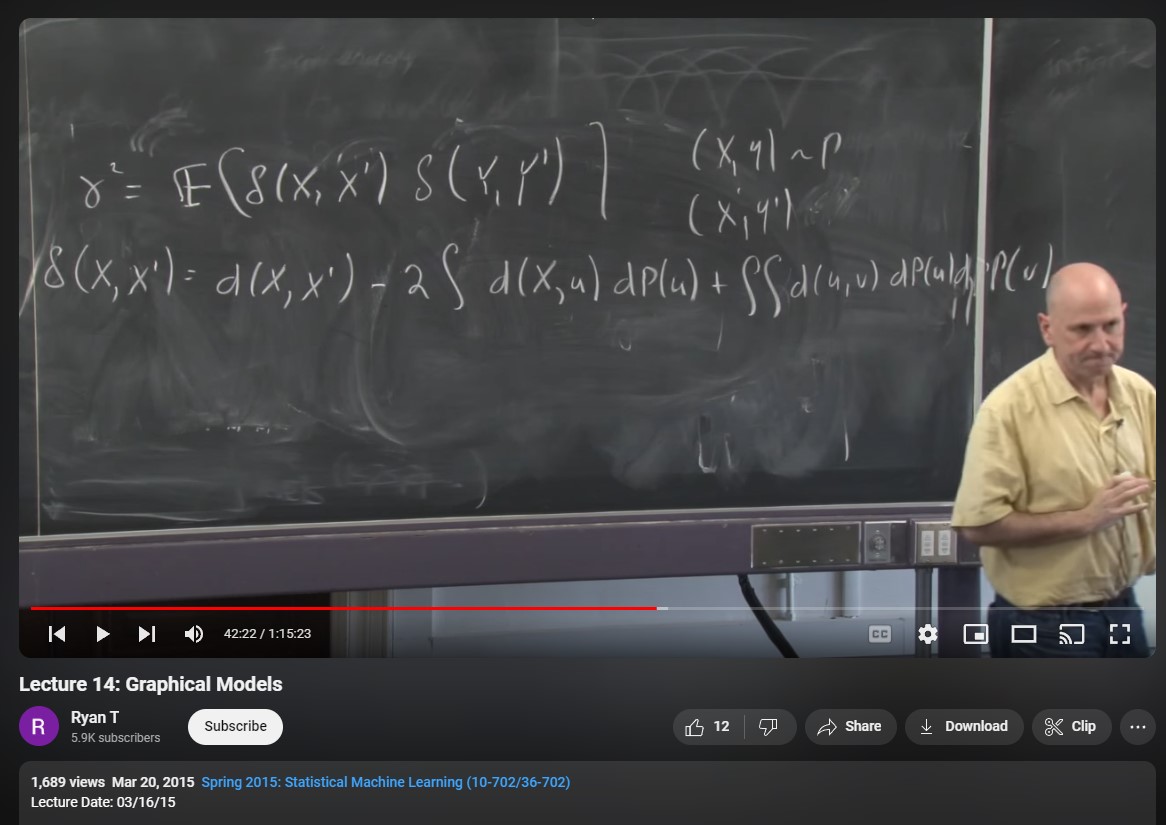 γ² = E[δ(X, X') δ(Y, Y')]
(X, Y) ~ P
(X', Y')
δ(X, X') = d(X, X') - 2 ∫ d(X, u) dP(u) + ∫∫ d(u, v) dP(u) dP(v)
42:22 / 1:15:23
CC
Lecture 14: Graphical Models
R
Ryan T
5.9K subscribers
Subscribe
12
Share
Download
Clip
1,689 views Mar 20, 2015 Spring 2015: Statistical Machine Learning (10-702/36-702)
Lecture Date: 03/16/15